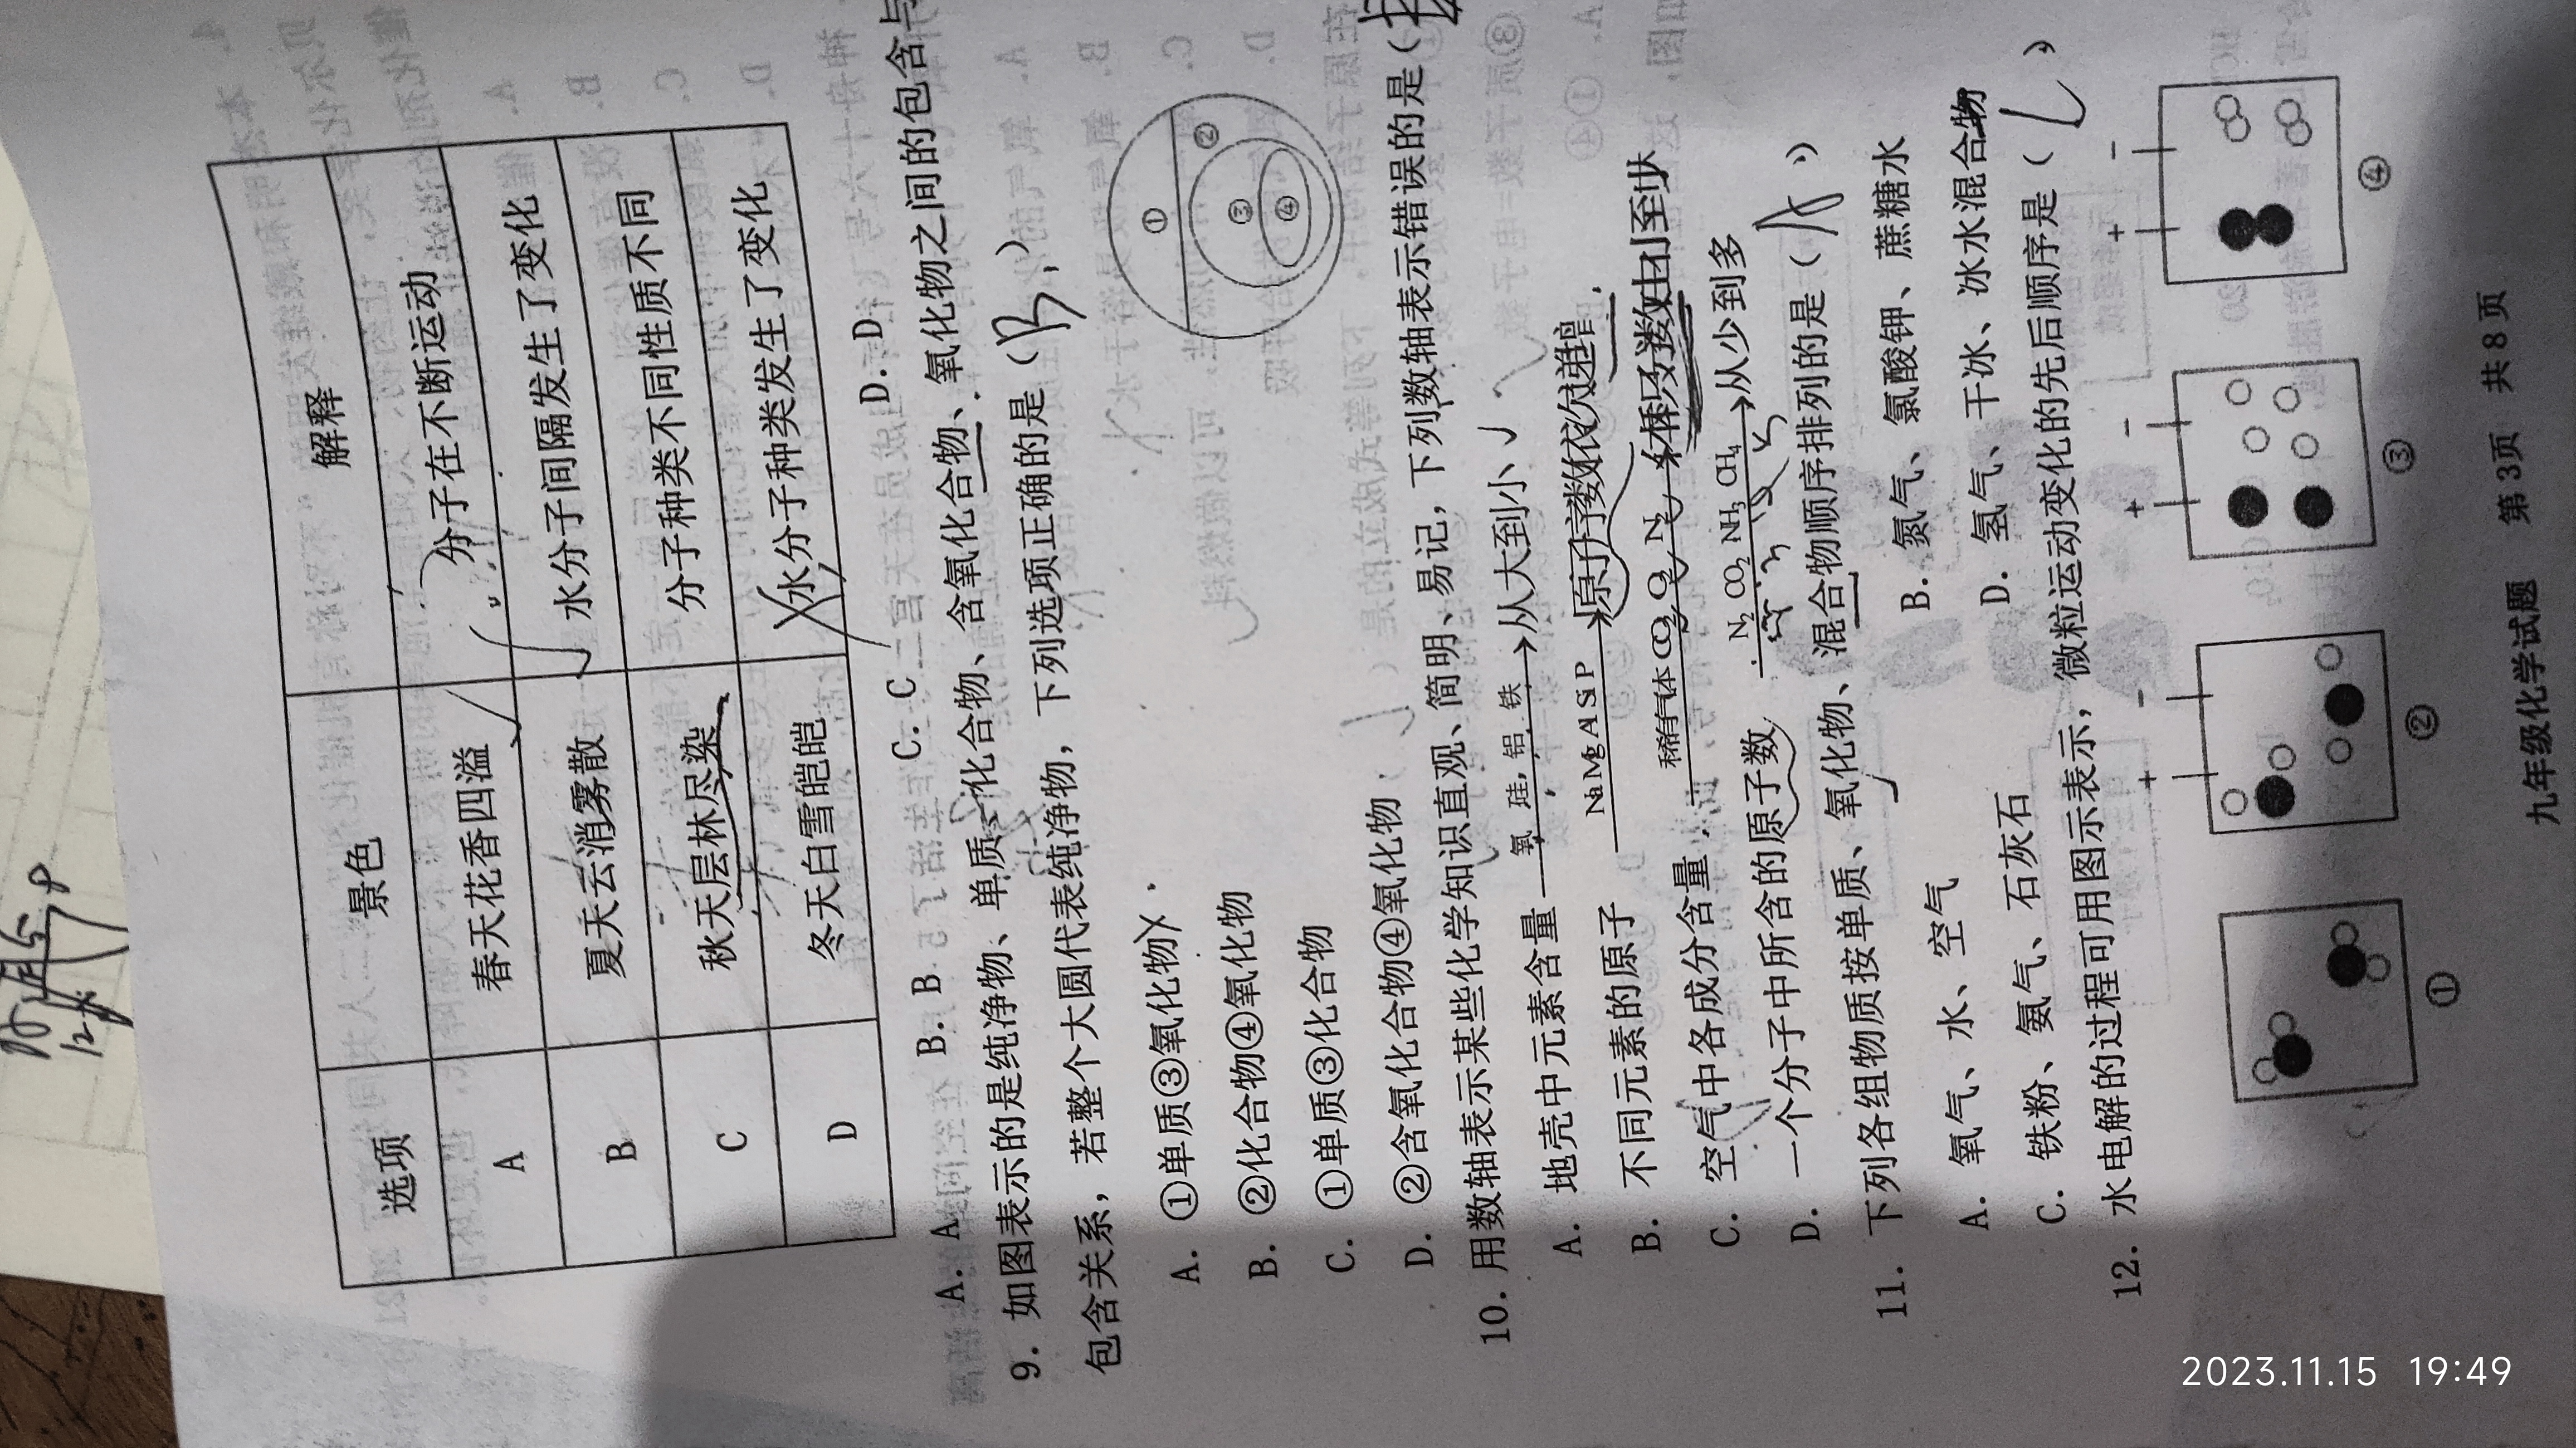 选项 景色 解释
A 春天花香四溢 分子在不断运动
B 夏天云消雾散 水分子间隔发生了变化
C 秋天层林尽染 分子种类不同性质不同
D 冬天白雪皑皑 水分子种类发生了变化
A. A B. B C. C D. D
9. 如图表示的是纯净物、单质、化合物、含氧化合物、氧化物之间的包含与
包含关系，若整个大圆代表纯净物，下列选项正确的是（B）
A. ①单质③氧化物
B. ②化合物④氧化物
C. ①单质③化合物
D. ②含氧化合物④氧化物
① ② ③ ④
10. 用数轴表示某些化学知识直观、简明、易记，下列数轴表示错误的是（
A. 地壳中元素含量 氧 硅 铝 铁 从大到小
B. 不同元素的原子 Na Mg Al S P 原子序数依次递增
C. 空气中各成分含量 稀有气体 O₂ N₂
D. 一个分子中所含的原子数 N₂ CO₂ NH₃ CH₄ 从少到多
11. 下列各组物质按单质、氧化物、混合物顺序排列的是（A）
A. 氧气、水、空气 B. 氮气、氯酸钾、蔗糖水
C. 铁粉、氨气、石灰石 D. 氢气、干冰、冰水混合物
12. 水电解的过程可用图示表示，微粒运动变化的先后顺序是（ ）
+ - + - + -
① ② ③ ④
九年级化学试题 第3页 共8页
2023.11.15 19:49